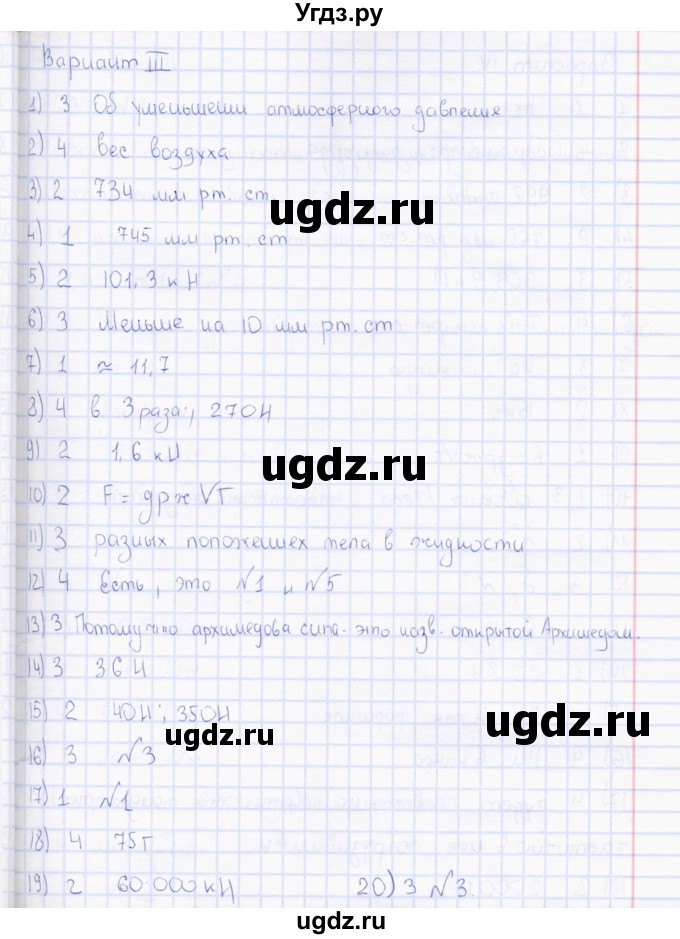 Угдз.ру
Вариант III
1) 3 Об уменьшении атмосферного давления
2) 4 вес воздуха
3) 2 734 мм рт. ст.
ugdz.ru
4) 1 745 мм рт. ст
5) 2 101,3 кН
6) 3 Меньше на 10 мм рт. ст
7) 1 ≈ 11,7
8) 4 в 3 раза; 270Н
9) 2 1,6 кН
ugdz.ru
10) 2 F = gρж Vт
11) 3 разных положениех тела в жидкости
12) 4 Есть, это №1 и №5
13) 3 Потому что архимедова сила - это назв. открытой Архимедом.
14) 3 36 Н
15) 2 40Н; 350Н
ugdz.ru
ugdz.ru
16) 3 №3
17) 1 №1
18) 4 75г
19) 2 60 000 кН 20) 3 №3.
ugdz.ru